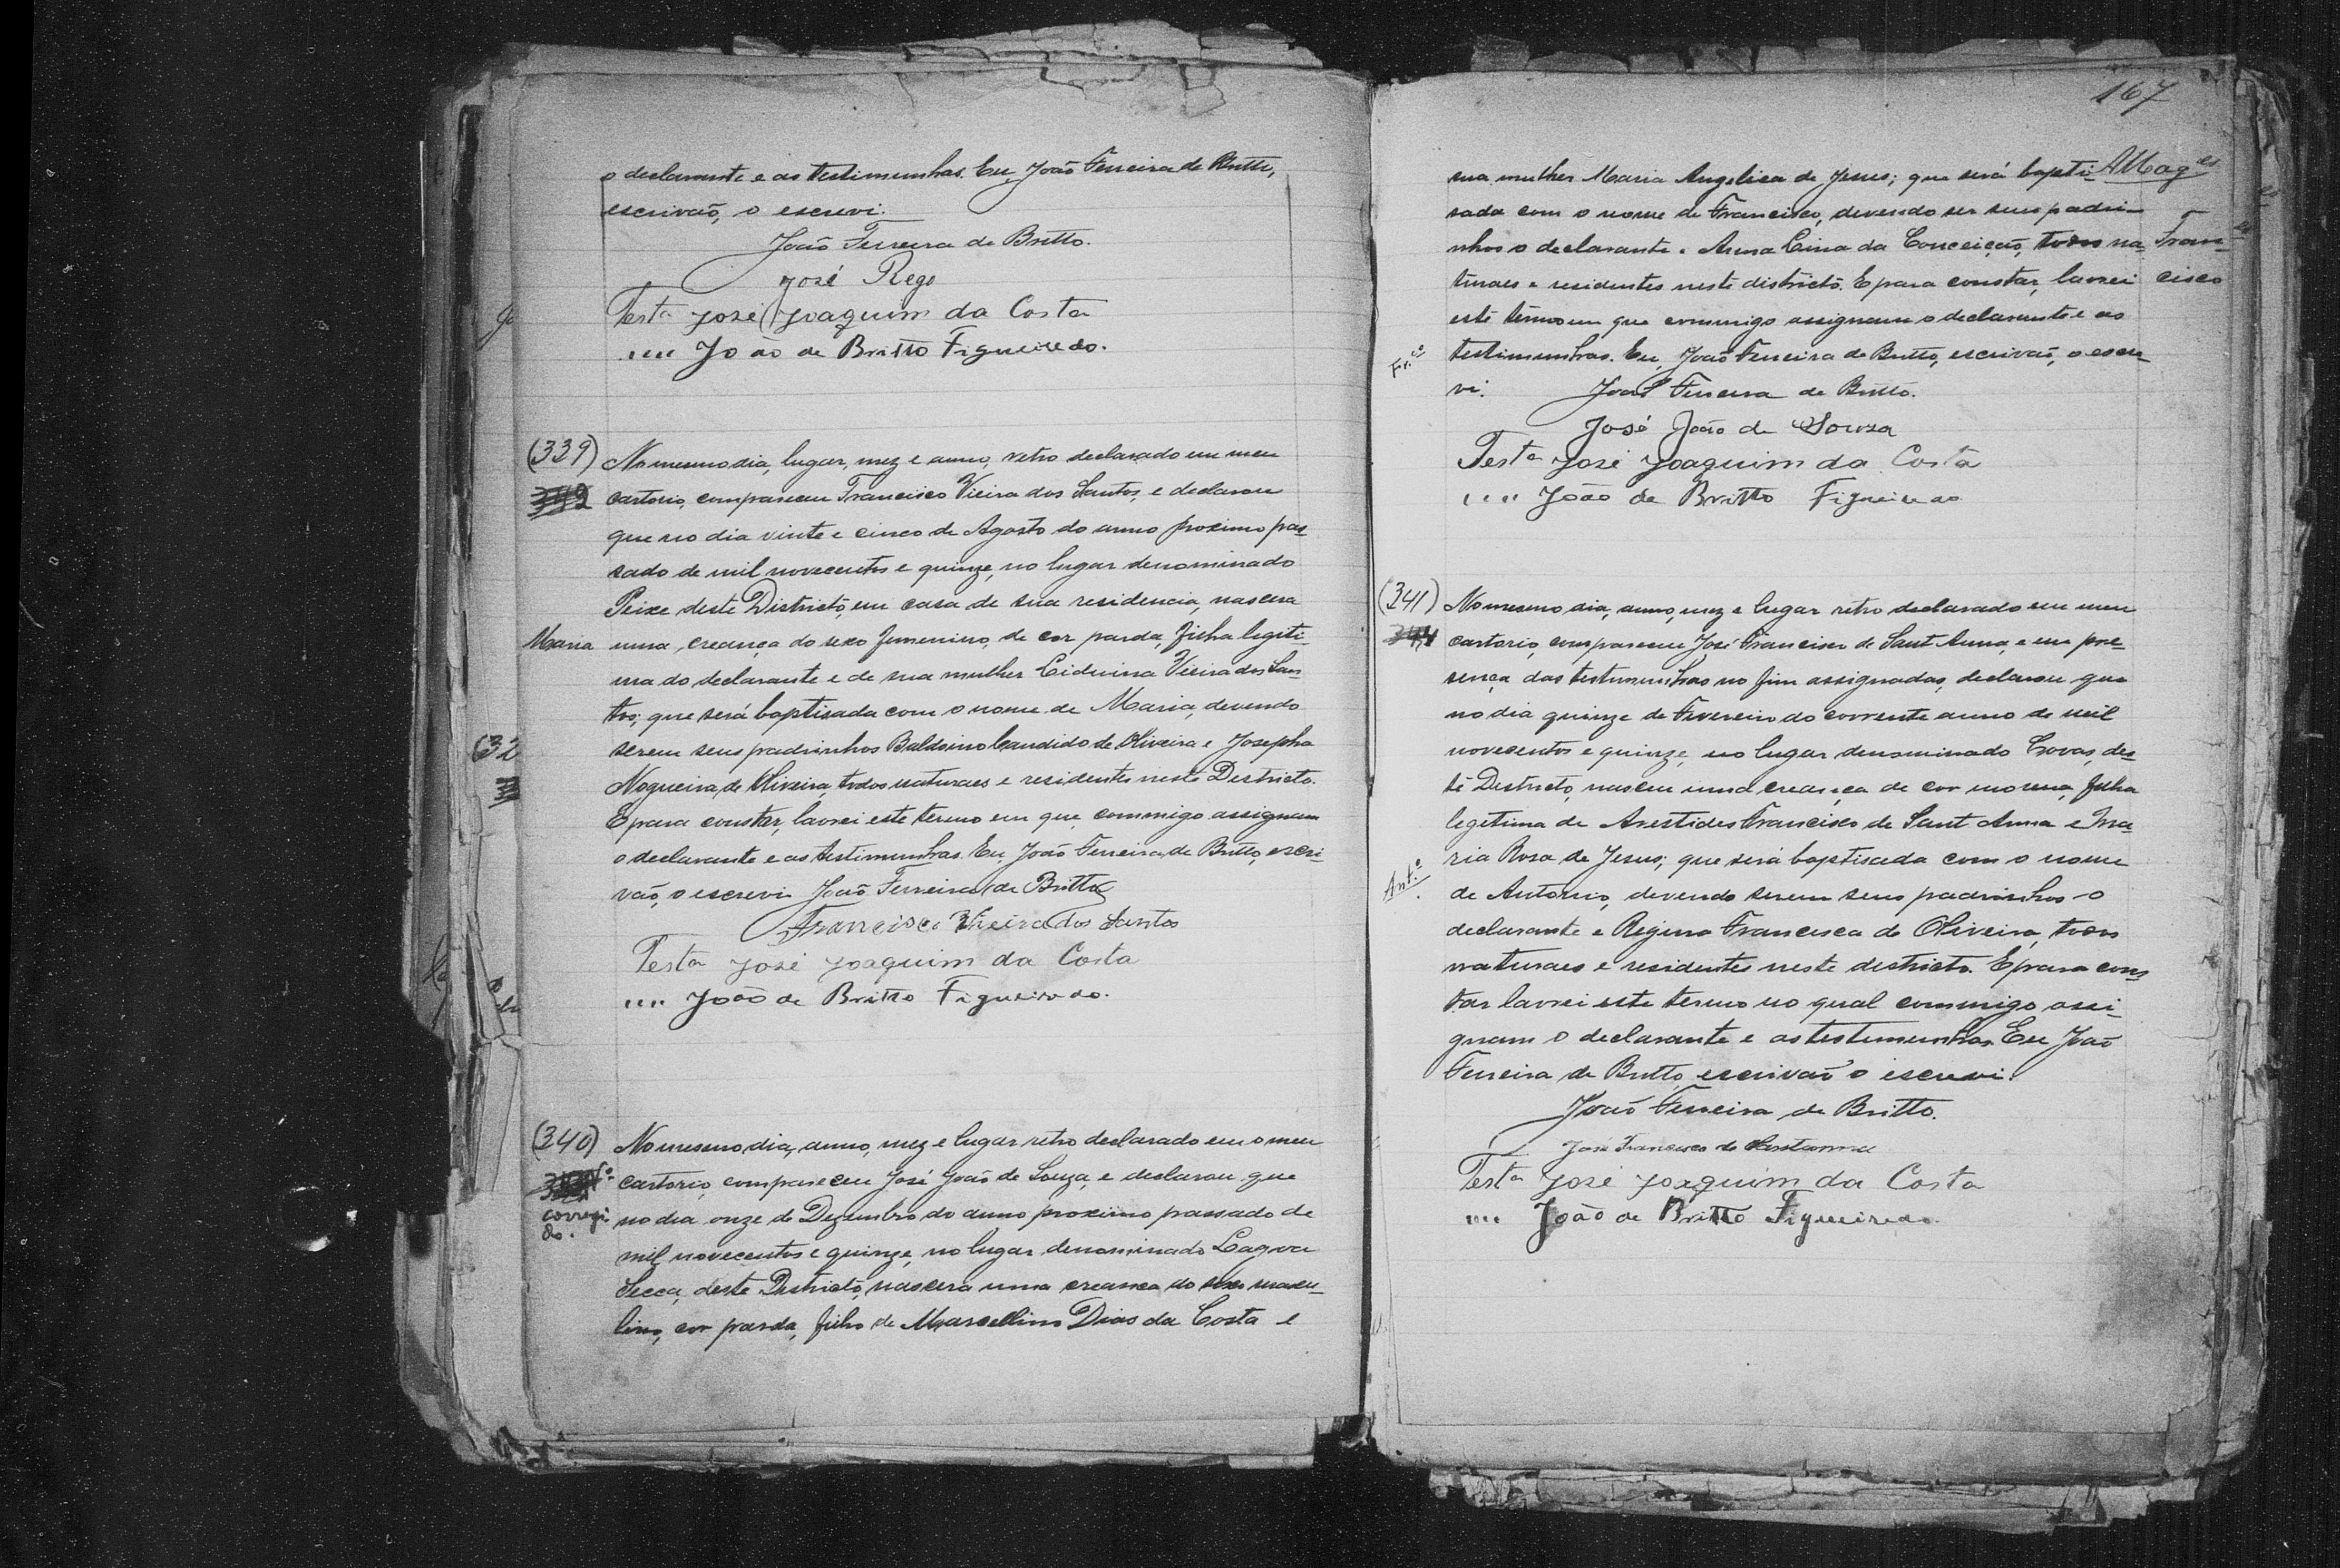 o declarante e as testimunhas. Eu, João Ferreira de Britto,
escrivão, o escrevi.
João Ferreira de Britto.
José Rego
Testa José Joaquim da Costa
"" João de Britto Figueiredo.
(339) No mesmo dia, lugar, mez e anno, retro declarado em meu
cartorio, compareceu Francisco Vieira dos Santos, e declarou
que no dia vinte e cinco de Agosto do anno proximo pas-
sado de mil novecentos e quinze, no lugar denominado
Peixe deste Districto, em casa de sua residencia, nascera
Maria uma creança do sexo femenino, de cor parda, filha legiti-
ma do declarante e de sua mulher Vieira dos San-
tos; que será baptisada com o nome de Maria, devendo
serem seus padrinhos Baldoino Candido de Oliveira e Josepha
Nogueira de Oliveira, todos naturaes e residentes neste Districto.
E para constar, lavrei este termo em que commigo assignam
o declarante e as testimunhas. Eu, João Ferreira de Britto, escri-
vão, o escrevi João Ferreira de Britto
Francisco Vieira dos Santos
Testa José Joaquim da Costa
"" João de Britto Figueiredo.
(340) No mesmo dia, anno, mez e lugar retro declarado em o meu
cartorio, compareceu José João de Souza, e declarou que
corregi- no dia onze de Dezembro do anno proximo passado de
do. mil novecentos e quinze, no lugar denominado Lagoa
Secca, deste Districto, nascera uma creanca do sexo mascu-
lino, cor parda, filho de Marcellino Dias da Costa e
167
sua mulher Maria Angelica de Jesus; que será bapti-
sada com o nome de Francisco, devendo ser seus padri-
nhos o declarante e Anna Lina da Conceição, todos na- Fran-
turaes e residentes neste districto. E para constar, lavrei cisco
este termo em que commigo assignam o declarante e as
Fr.co testimunhas. Eu, João Ferreira de Britto, escrivão, o escre-
vi. João Ferreira de Britto.
José João de Souza
Testa José Joaquim da Costa
"" João de Britto Figueiredo
(341) No mesmo dia, anno, mez e lugar retro declarado em meu
cartorio, compareceu José Francisco de Sant Anna, e em pre-
sença das testimunhas no fim assignadas, declarou que
no dia quinze de Fevereiro do corrente anno de mil
novecentos e quinze, no lugar denominado Covas, des-
te Districto, nasceu uma creança de cor morena, filha
legitima de Arestides Francisco de Sant Anna e Ma-
ria Rosa de Jesus; que será baptisada com o nome
Ant.o de Antonio, devendo serem seus padrinhos o
declarante e Regina Francisca de Oliveira, todos
naturaes e residentes neste destricto. E para cons-
tar lavrei este termo no qual commigo assi-
gnam o declarante e as testemunhas. Eu João
Ferreira de Britto, escrivão o escrevi.
João Ferreira de Britto.
José Francisco de Santanna
Testa José Joaquim da Costa
"" João de Britto Figueiredo.